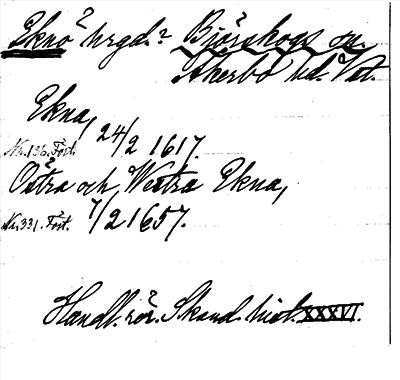 Eknö hrgd.? Björskogs sn.
Åkerbo hd. Vst.
Ekna, 24/2 1617.
Nr. 136. Fört.
Östra och Westra Ekna,
Nr. 331. Fört. 7/2 1657.
Handl. rör. Skand. hist. XXXVI.